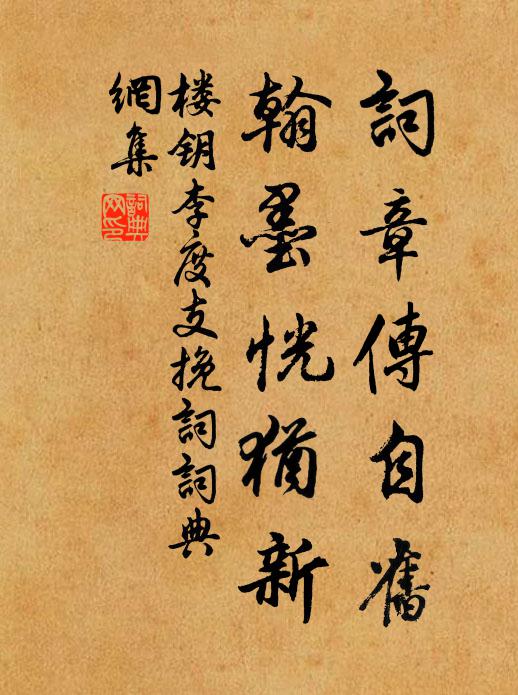 詞章傳自舊
翰墨恍猶新
楼钥李度支挽詞詞典
網集
詞典网印